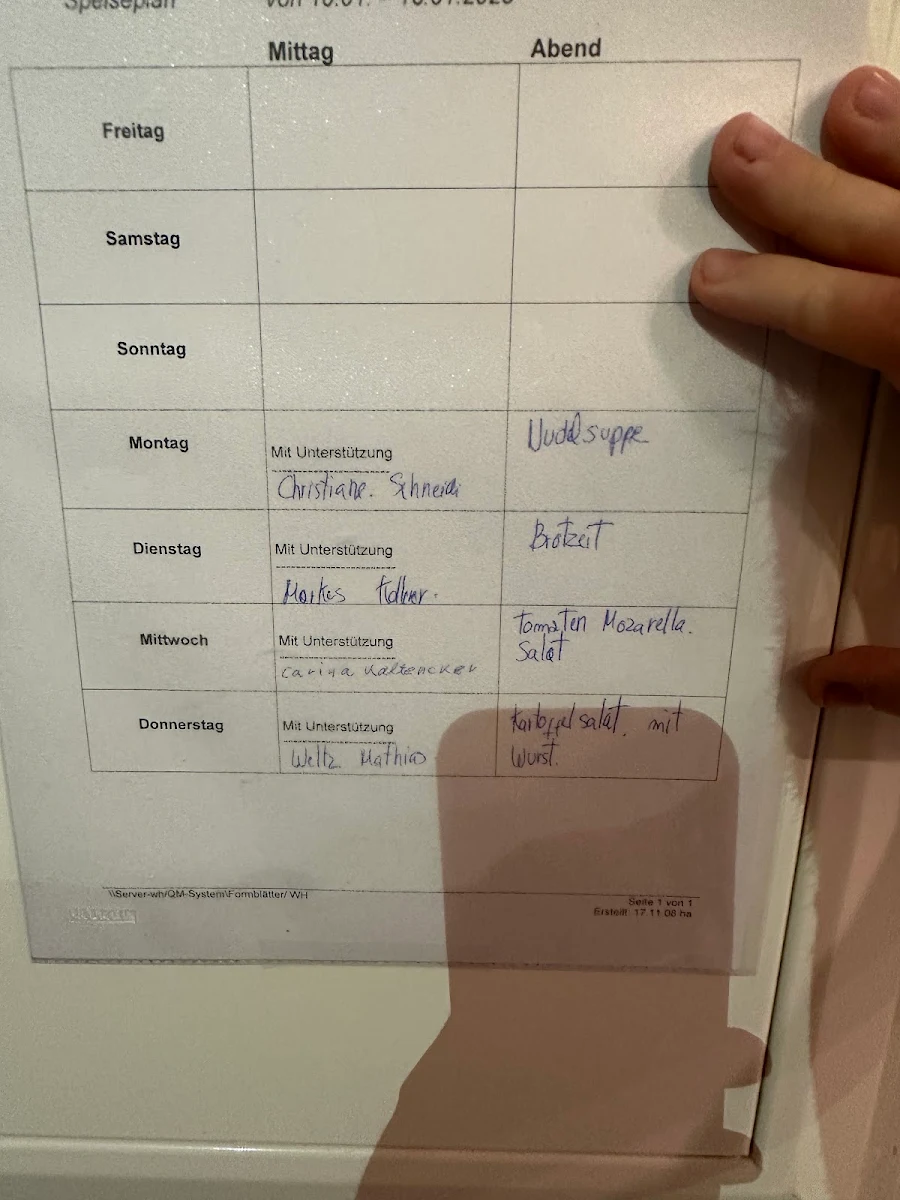 Speiseplan
Mittag Abend
Freitag
Samstag
Sonntag
Montag
Mit Unterstützung
Christiane. Schneidi
Nudelsuppe
Dienstag
Mit Unterstützung
Markus
Brotzeit
Mittwoch
Mit Unterstützung
Carina Kaltencker
Tomaten Mozarella.
Salat
Donnerstag
Mit Unterstützung
Weltz Mathias
Kartoffelsalat. mit
Wurst.
\\Server-wh/QM-System\Formblätter/ WH
Seite 1 von 1
Erstellt: 17.11.08 ha